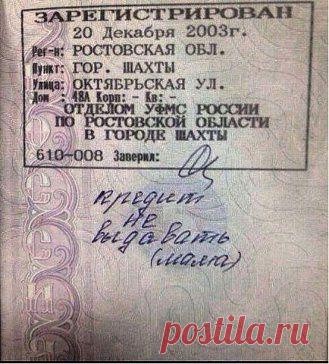 ЗАРЕГИСТРИРОВАН
20 Декабря 2003г.
Рег-н: РОСТОВСКАЯ ОБЛ.
Пункт: ГОР. ШАХТЫ
Улица: ОКТЯБРЬСКАЯ УЛ.
Дом : 48А Корп: - Кв: -
ОТДЕЛОМ УФМС РОССИИ
ПО РОСТОВСКОЙ ОБЛАСТИ
В ГОРОДЕ ШАХТЫ
610-008 Заверил:
кредит
не
выдавать
(мама)
postila.ru